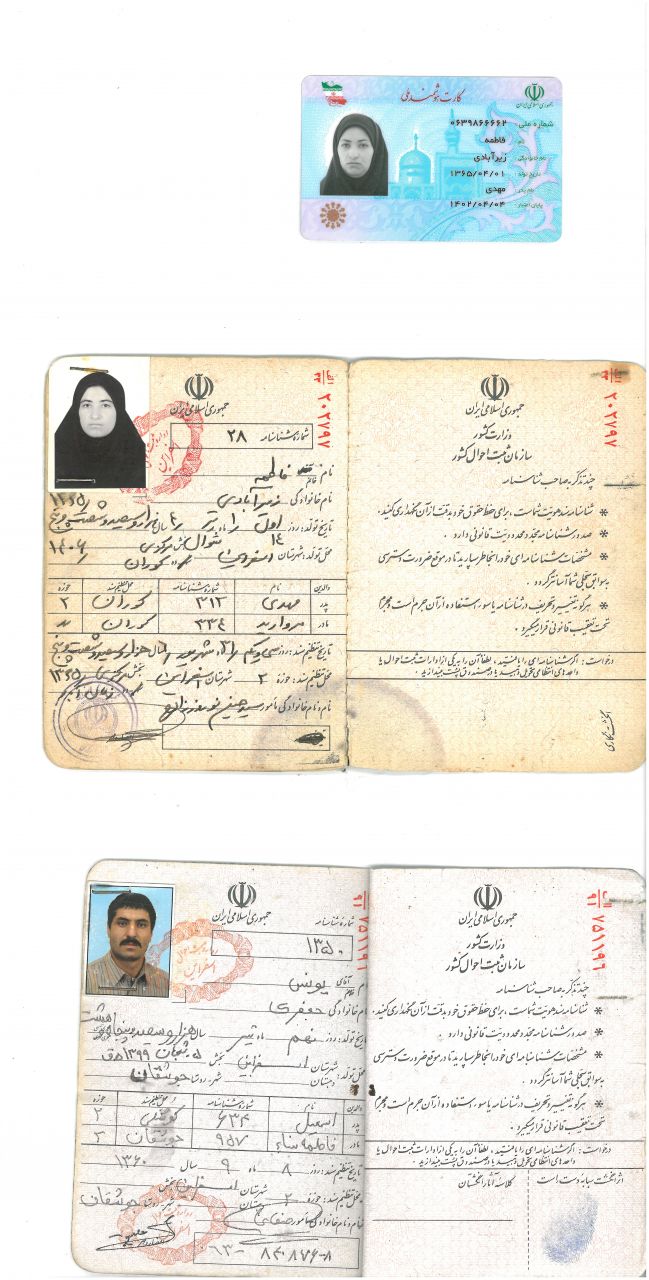 کارت هوشمند ملی
جمهوری اسلامی ایران
شماره ملی: ۰۶۳۹۸۶۶۶۶۲
نام: فاطمه
نام خانوادگی: زیرآبادی
تاریخ تولد: ۱۳۶۵/۰۴/۰۱
نام پدر: مهدی
پایان اعتبار: ۱۴۰۲/۰۴/۰۴
جمهوری اسلامی ایران
۲۰۲۷۹۷
شماره شناسنامه ۲۸
نام: فاطمه
نام خانوادگی: زیرآبادی
تاریخ تولد: روز اول ماه تیر سال هزار و سیصد و شصت و پنج ۱۳۶۵
۱۴ شوال ۱۴۰۶
محل تولد: شهرستان اسفراین بخش مرکزی
والدین نام شماره شناسنامه محل تنظیم سند حوزه
پدر مهدی ۳۱۳ کوران ۲
مادر مروارید ۳۳۴ کوران
تاریخ تنظیم سند: روز سی و یکم ماه شهریور سال هزار و سیصد و شصت و پنج ۱۳۶۵
محل تنظیم سند: حوزه ۲ شهرستان اسفراین بخش مرکزی
نام و نام خانوادگی مأمور
جمهوری اسلامی ایران
وزارت کشور
سازمان ثبت احوال کشور
۲۰۲۷۹۷
چند تذکر به صاحب شناسنامه
* شناسنامه سند هویت شماست، برای حفظ حقوق خود به دقت از آن نگهداری کنید.
* صدور شناسنامه مجدد محدودیت قانونی دارد.
* مشخصات شناسنامه ای خود را بخاطر بسپارید تا در موقع ضرورت دسترسی
به سوابق سجلی شما آسانتر گردد.
* هرگونه تغییر و تحریف در شناسنامه یا سوء استفاده از آن جرم است و مجرم
تحت تعقیب قانونی قرار میگیرد.
درخواست: اگر شناسنامه ای را یافتید، لطفاً آن را به یکی از ادارات ثبت احوال یا
واحدهای انتظامی تحویل دهید یا در صندوق پست بیندازید.
جمهوری اسلامی ایران
شماره شناسنامه
۱۳۵۰
۷۵۱۱۹۶
نام: آقای یونس
نام خانوادگی: جعفری
تاریخ تولد: روز نهم ماه تیر سال هزار و سیصد و پنجاه و هشت
محل تولد: شهرستان اسفراین بخش
والدین نام شماره شناسنامه محل تنظیم سند حوزه
پدر اسمعیل ۶۳۴ ۲
مادر فاطمه نساء ۹۵۷ جوشقان ۲
تاریخ تنظیم سند: روز ۸ ماه ۹ سال ۱۳۶۰
محل تنظیم سند: حوزه ۲ شهرستان اسفراین
نام و نام خانوادگی مأمور
جمهوری اسلامی ایران
وزارت کشور
سازمان ثبت احوال کشور
۷۵۱۱۹۶
چند تذکر به صاحب شناسنامه
* شناسنامه سند هویت شماست، برای حفظ حقوق خود به دقت از آن نگهداری کنید.
* صدور شناسنامه مجدد محدودیت قانونی دارد.
* مشخصات شناسنامه ای خود را بخاطر بسپارید تا در موقع ضرورت دسترسی
به سوابق سجلی شما آسانتر گردد.
* هرگونه تغییر و تحریف در شناسنامه یا سوء استفاده از آن جرم است و مجرم
تحت تعقیب قانونی قرار میگیرد.
درخواست: اگر شناسنامه ای را یافتید، لطفاً آن را به یکی از ادارات ثبت احوال یا
واحدهای انتظامی تحویل دهید یا در صندوق پست بیندازید.
اثر انگشت سبابه دست است
کلاسه آثار انگشتان